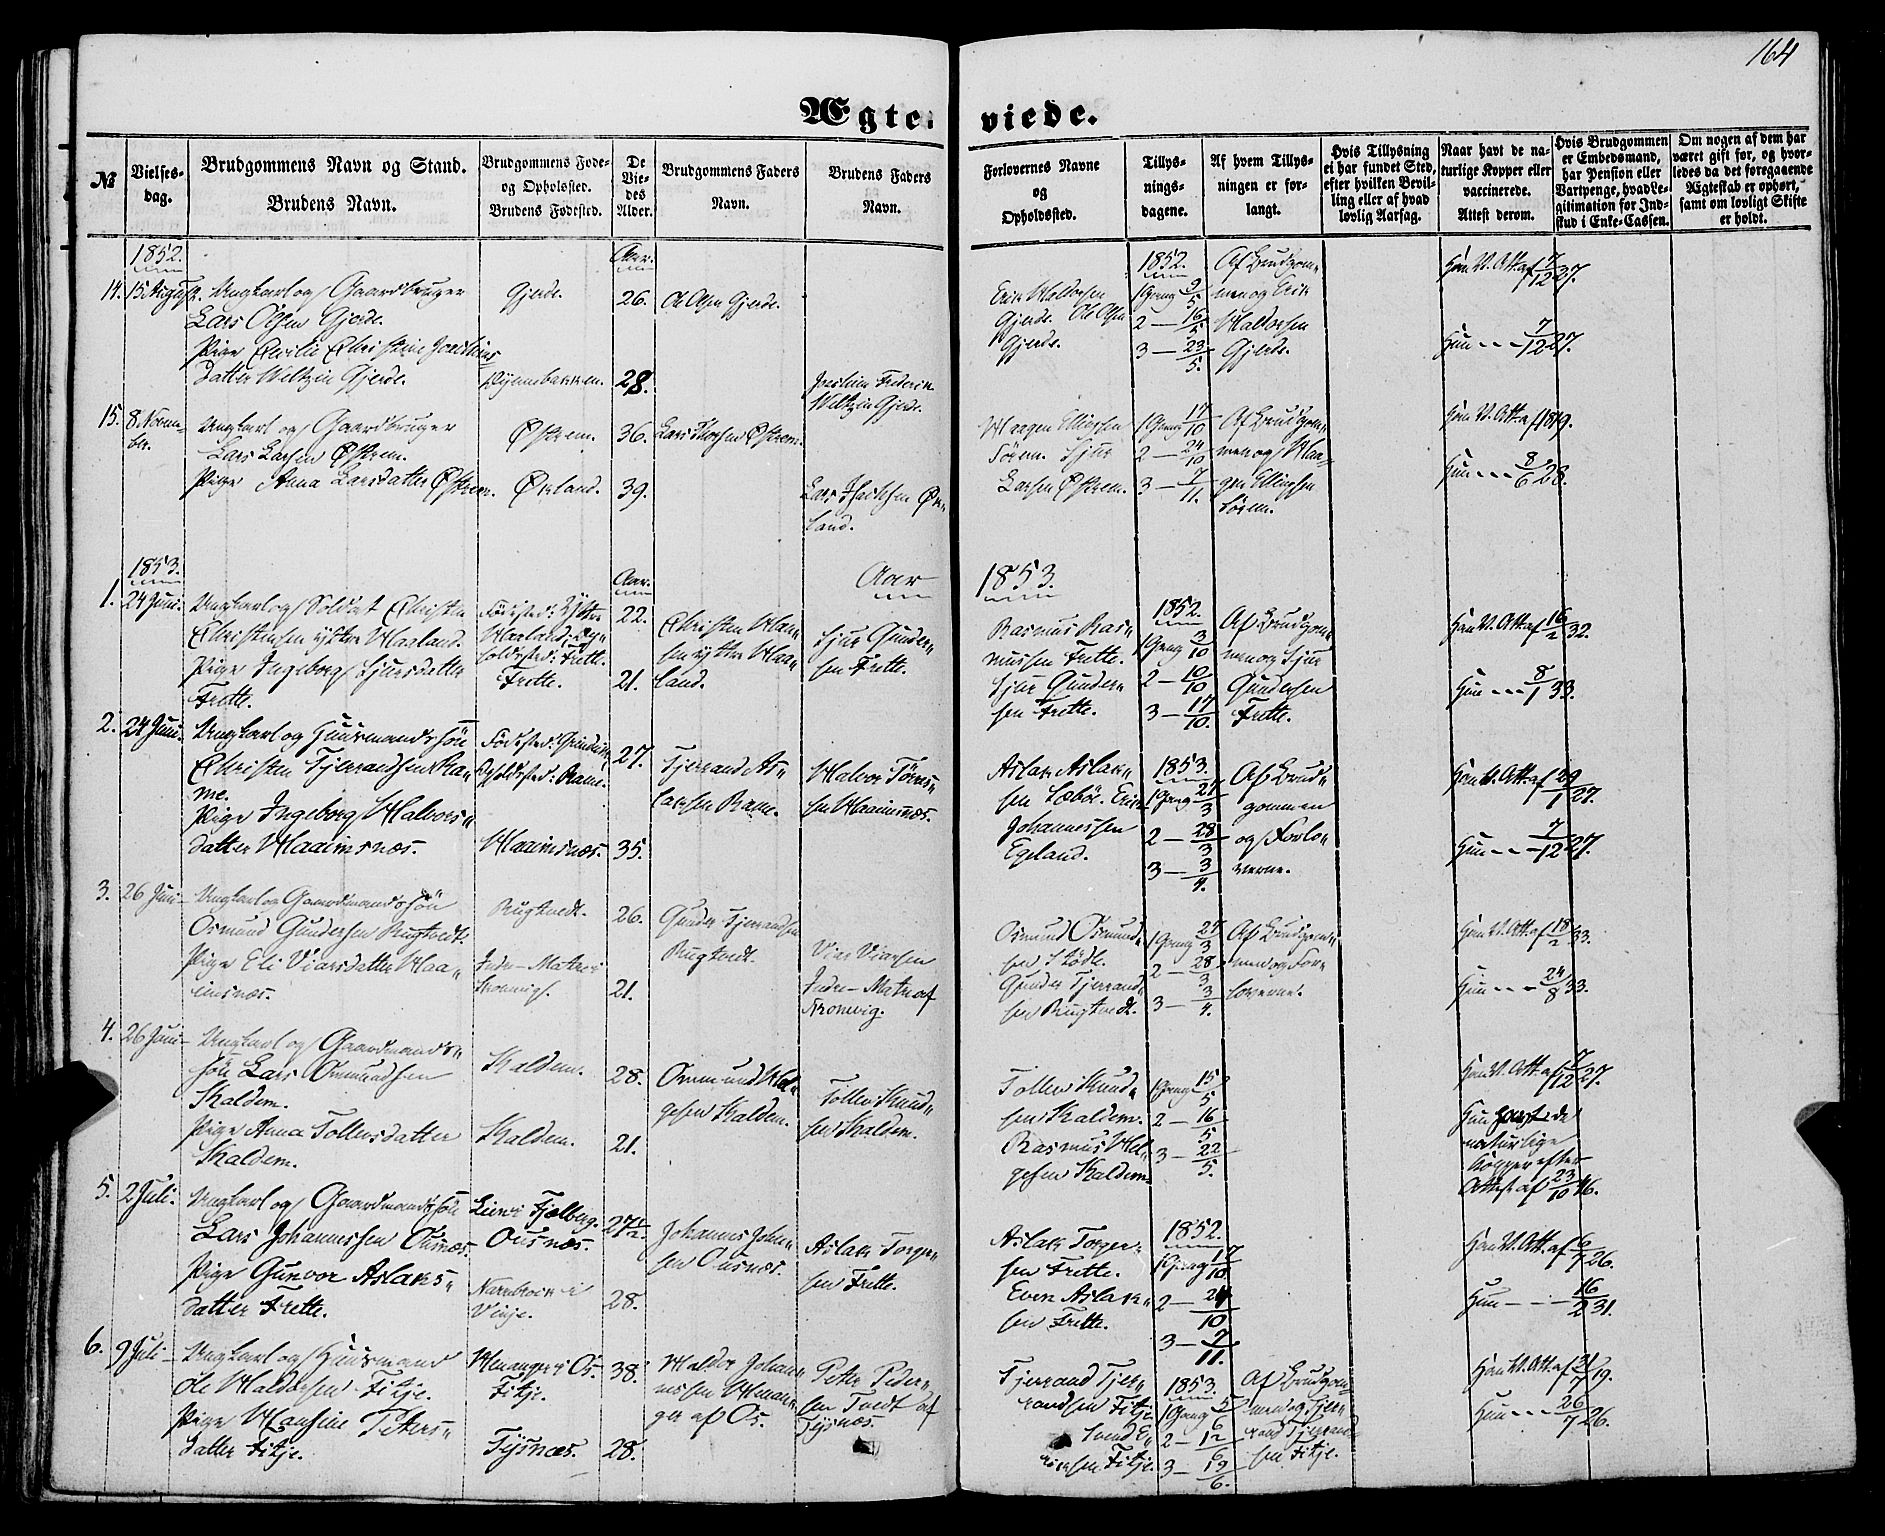 164
Ægte- viede.
№
Vielses-
dag.
Brudgommens Navn og Stand.
Brudens Navn.
Brudgommens Føde-
og Opholdsted.
Brudens Fødested.
De
Vie-
des
Alder.
Brudgommens Faders
Navn.
Brudens Faders
Navn.
Forlovernes Navne
og
Opholdssted.
Tillys-
nings-
dagene.
Af hvem Tillys-
ningen er for-
langt.
Hvis Tillysning
ei har fundet Sted,
efter hvilken Bevil-
ling eller af hvad
lovlig Aarsag.
Naar havt de na-
turlige Kopper eller
vaccinerede.
Attest derom.
Hvis Brudgommen
er Embedsmand,
har Pension eller
Vartpenge, hvad Le-
gitimation for Ind-
skud i Enke-Cassen.
Om nogen af dem har
været gift før, og hvor-
ledes da det foregaaende
Ægteskab er ophørt,
samt om lovligt Skifte
er holdt.
1852.
Aar.
14. 15 August. Ungkarl og Gaardbruger
Lars Olsen Gjerde.
Pige Cecilie Christine Joachims
datter Weltzin Gjerde.
Gjerde.
26.
28.
Ole Olsen Gjerde.
Joachim Frederik
Weltzin Gjerde.
Erik Haldorsen
Gjerde. Ole Olsen
Gjerde.
1852.
1 Gang 9/5
2 — 16/5
3 — 23/5.
Af Brudgom-
men og Erik
Haldorsen
Gjerde.
Han V. Att. af 7/12 27.
Hun - - - 7/12 27.
15. 8. Novem-
ber.
Ungkarl og Gaardbruger
Lars Larsen Østrem.
Pige Anna Larsdatter Østrem.
Østrem.
Økland.
36.
39.
Lars Thorsen Østrem.
Lars Jacobsen Øk-
land.
Haagen Ellingsen
Sørem. Sjur
Larsen Østrem.
1 Gang 17/10
2 — 24/10
3 — 7/11.
Af Brudgom-
men og Haa-
gen Ellingsen
Sørem.
Han V. Att. af 1819.
Hun - - - 8/6 28.
1853.
Aar.
Aar 1853.
1. 24 Juni. Ungkarl og Soldat Christen
Christensen yttre Haaland.
Pige Ingeborg Sjursdatter
Frette.
Fødested: Yttre
Haaland; Op-
holdsted: Frette.
Frette.
22.
21.
Christen Han-
sen yttre Haa-
land.
Sjur Gunder-
sen Frette.
Rasmus Ras-
mussen Frette.
Sjur Gunder-
sen Frette.
1852.
1 Gang 3/10
2 — 10/10
3 — 17/10.
Af Brudgom-
men og Sjur
Gundersen
Frette.
Han V. Att. af 16/2 32.
Hun - - - 8/1 33.
2. 24 Juni. Ungkarl og Huusmandssøn
Christen Tjerrandsen Ra-
me.
Pige Ingeborg Halvors-
datter Haaimsnæs.
Opholdsted: Rame.
Haaimsnæs.
27.
35.
Tjerrand As-
laksen Rame.
Halvor Tørres-
sen Haaimsnæs.
Aslak Aslak-
sen Sæbø. Erik
Johannessen
Egeland.
1853.
1 Gang 27/3
2 — 28/3
3 — 3/4.
Af Brud-
gommen
og Forlo-
verne.
Han V. Att. af 29/1 27.
Hun - - - 7/12 27.
3. 26 Juni Ungkarl og Gaardmandssøn
Osmund Gundersen Rugtvedt.
Pige Eli Viersdatter Haa-
imsnæs.
Rugtvedt.
Indre-Matre i
26.
21.
Gunder Tjerrandsen
Rugtvedt.
Vier Viersen
Indre-Matre af
Osmund Osmund-
sen Stødle.
Gunder Tjerrand-
sen Rugtvedt.
1 Gang 27/3
2 — 28/3
3 — 3/4.
Af Brudgom-
men og For-
loverne.
Han V. Att. af 18/2 33.
Hun - - - 24/8 33.
4. 26 Juni Ungkarl og Gaardmands-
søn Lars Osmundsen
Skaldem.
Pige Anna Tollevsdatter
Skaldem.
Skaldem.
Skaldem.
28.
21.
Osmund Hel-
gesen Skaldem.
Tollev Knud-
sen Skaldem.
Tollev Knud-
sen Skaldem.
Rasmus Hel-
gesen Skaldem.
1 Gang 15/5
2 — 16/5
3 — 22/5.
Han V. Att. af 7/12 27.
Hun havt de
naturlige
Kopper efter
Attest af 23/10 46.
5. 2 Juli. Ungkarl og Gaardmandssøn
Lars Johannessen Ousnæs.
Pige Gunvor Aslaks-
datter Frette.
Lien i Fjelberg.
Ousnæs.
Vinje.
27 1/2
28.
Johannes John-
sen Ousnæs.
Aslak Torger-
sen Frette.
Aslak Torger-
sen Frette.
Even Aslak-
sen Frette.
1852.
1 Gang 17/10
2 — 24/10
3 — 7/11.
Han V. Att. af 6/7 26.
Hun - - - 16/2 31.
6. 9 Juli Ungkarl og Huusmand
Ole Haldorsen Fitje.
Pige Hansine Peters-
datter Fitje.
Fitje.
Tysnæs.
38.
28.
Haldor Johan-
nessen
af Os.
Petter Peder-
sen Tvedt af
Tysnæs.
Tjerrand Tjer-
randsen Fitje
Svend E-
riksen Fitje.
1853.
1 Gang 5/6
2 — 12/6
3 — 19/6.
Af Brudgom-
men og Tjer-
rand Tjerrand-
sen Fitje.
Han V. Att. af 31/7 19.
Hun - - - 26/7 26.